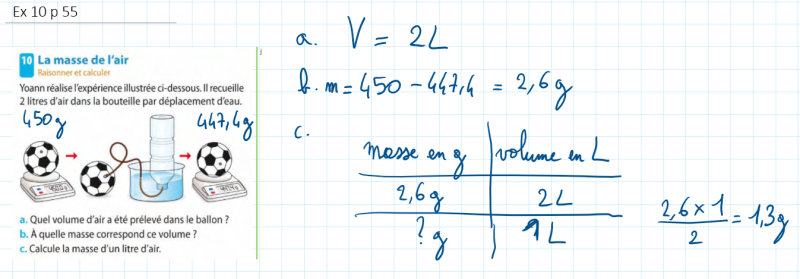 Ex 10 p 55
10 La masse de l'air
Raisonner et calculer
Yoann réalise l'expérience illustrée ci-dessous. Il recueille
2 litres d'air dans la bouteille par déplacement d'eau.
450g 447,4g
a. Quel volume d'air a été prélevé dans le ballon ?
b. À quelle masse correspond ce volume ?
c. Calcule la masse d'un litre d'air.
a. V = 2L
b. m = 450 - 447,4 = 2,6g
c.
masse en g volume en L
2,6g 2L
? g 1L
2,6 × 1
2
= 1,3g